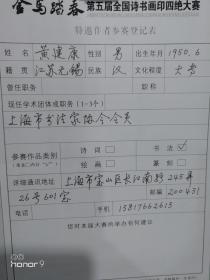 金马踏春 第五届全国诗书画印四绝大赛
特邀作者参赛登记表
姓名 黄建康 性别 男 出生年月 1950.6
籍贯 江苏无锡 民族 汉 文化程度 大专
曾任职务 职称
现任学术团体或职务（1-3个）
上海市书法家协会会员
参赛作品类别 诗词 书法 ✓
绘画 篆刻
详细通讯地址 上海市宝山区长江南路245弄
26号601室 邮编 200431
电话 手机 15817662615
您对本届大赛的举办有何建议
HONOR 9